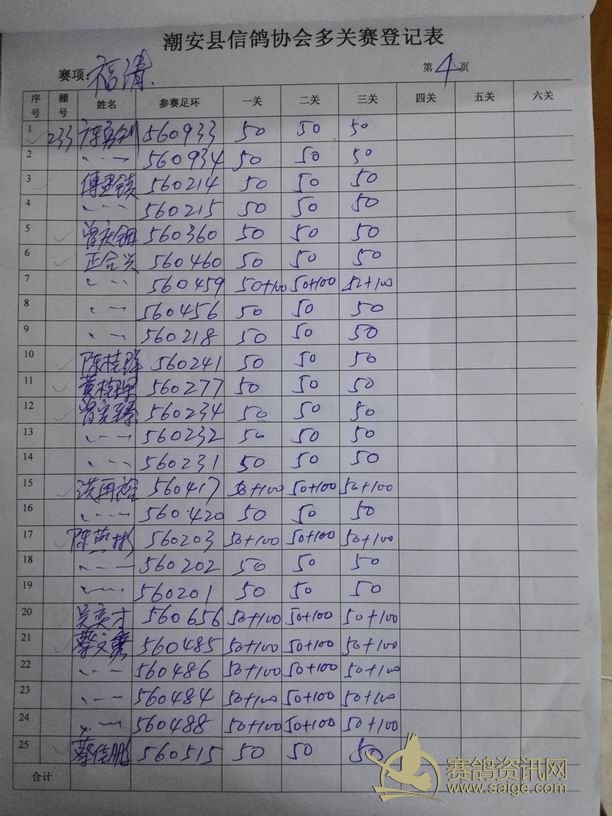 潮安县信鸽协会多关赛登记表
赛项: 福清 第4页
序号 棚号 姓名 参赛足环 一关 二关 三关 四关 五关 六关
1 233 560933 50 50 50
2 560934 50 50 50
3 560214 50 50 50
4 560215 50 50 50
5 560360 50 50 50
6 正合兴 560460 50 50 50
7 560459 50+100 50+100 50+100
8 560456 50 50 50
9 560218 50 50 50
10 560241 50 50 50
11 560277 50 50 50
12 560234 50 50 50
13 560232 50 50 50
14 560231 50 50 50
15 560417 50+100 50+100 50+100
16 560420 50 50 50
17 560203 50+100 50+100 50+100
18 560202 50 50 50
19 560201 50 50 50
20 吴英才 560656 50+100 50+100 50+100
21 560485 50+100 50+100 50+100
22 560486 50+100 50+100 50+100
23 560484 50+100 50+100 50+100
24 560488 50+100 50+100 50+100
25 蔡佳鹏 560515 50 50 50
合计
赛鸽资讯网
www.saige.com